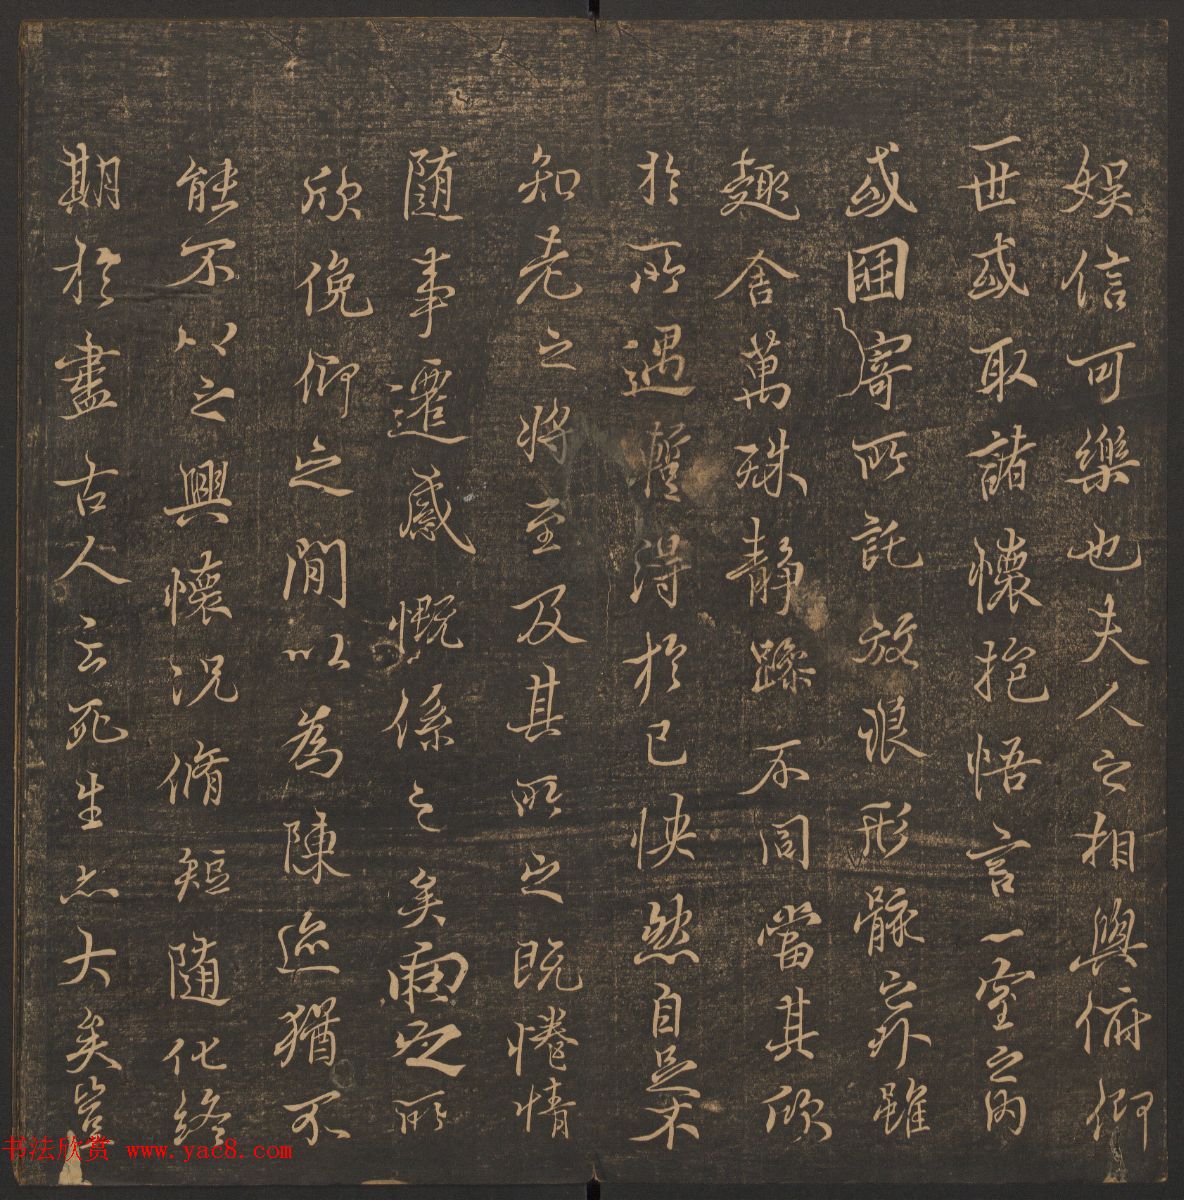 娛信可樂也夫人之相與俯仰
一世或取諸懷抱悟言一室之內
或因寄所託放浪形骸之外雖
趣舍萬殊静躁不同當其欣
於所遇暫得於己快然自足不
知老之將至及其所之既惓情
随事遷感慨係之矣向之所
欣俛仰之間以為陳迹猶不
能不以之興懷況脩短随化終
期於盡古人云死生亦大矣豈
书法欣赏 www.yac8.com